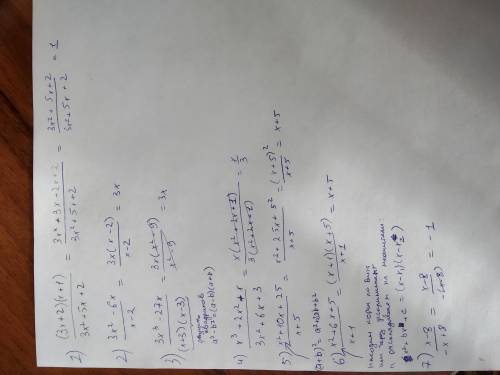 1) (3x+2)(x+1) / 3x²+5x+2 = 3x²+3x+2x+2 / 3x²+5x+2 = 3x²+5x+2 / 3x²+5x+2 = 1
2) 3x²-6x / x-2 = 3x(x-2) / x-2 = 3x
3) 3x³-27x / (x+3)(x-3) = 3x(x²-9) / x²-9 = 3x
разность квадратов
a²-b²=(a-b)(a+b)
4) x³+2x²+x / 3x²+6x+3 = x(x²+2x+1) / 3(x²+2x+1) = x/3
5) x²+10x+25 / x+5 = x²+2·5x+5² / x+5 = (x+5)² / x+5 = x+5
(a+b)²=a²+2ab+b²
6) x²+6x+5 / x+1 = (x+1)(x+5) / x+1 = x+5
находим корни по Виета
или через дискриминант
и раскладываем на множители:
x²+bx+c=(x-x₁)(x-x₂)
7) x-8 / -x+8 = x-8 / -(x-8) = -1